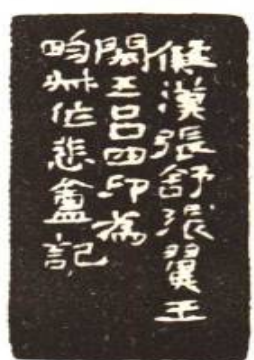 漢張舒張翼王
閎王呂四印為
畇叔作悲盦記